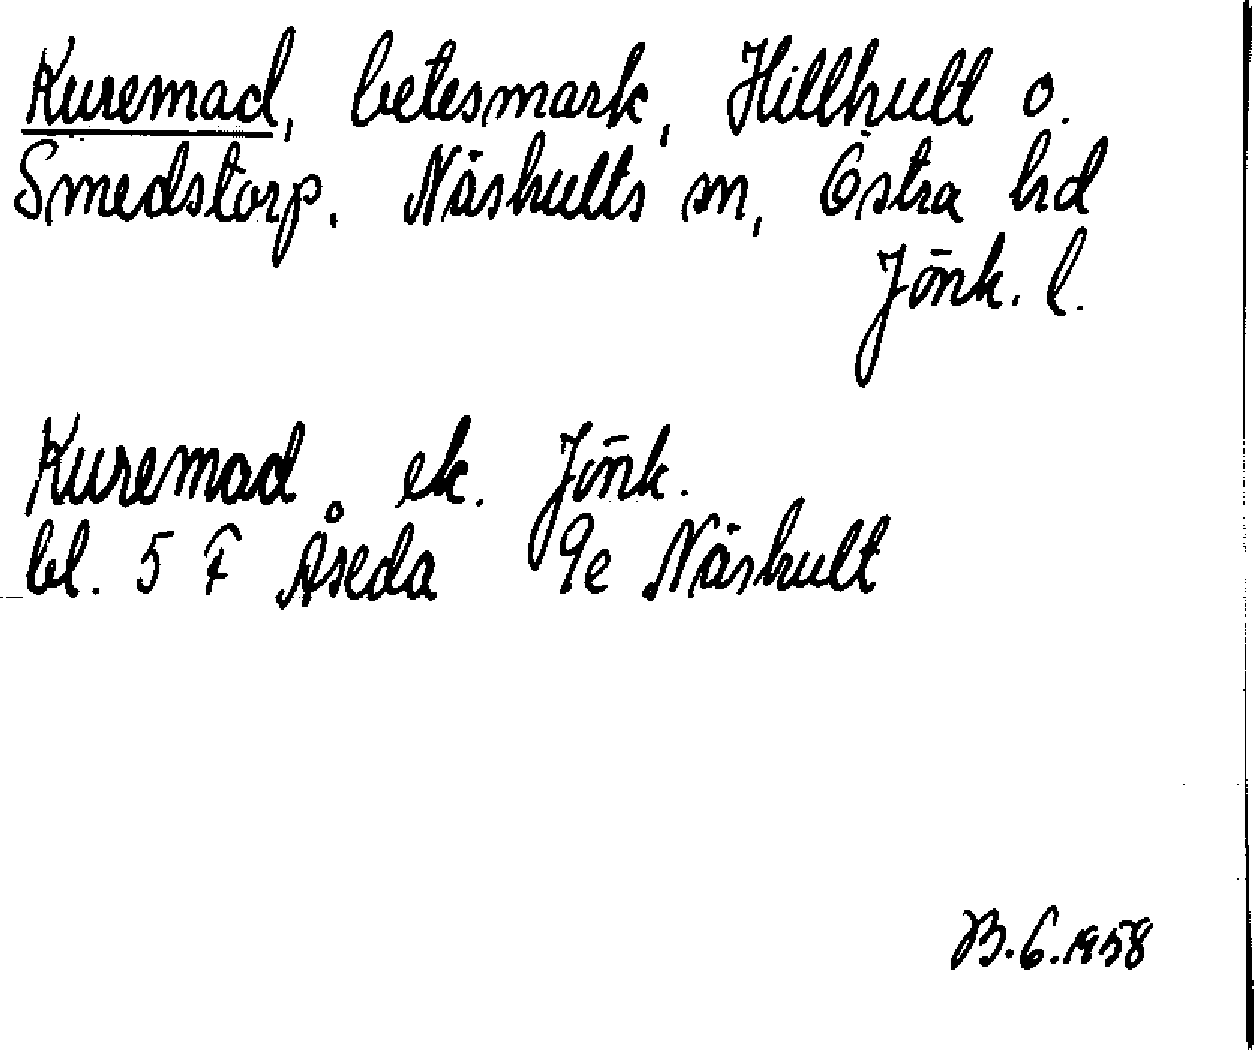 Kuremad, betesmark, Hillhult o.
Smedstorp. Näshults sn, Östra hd
Jönk. l.
Kuremad ek. Jönk.
bl. 5 F Åseda 9e Näshult
B.G.1958